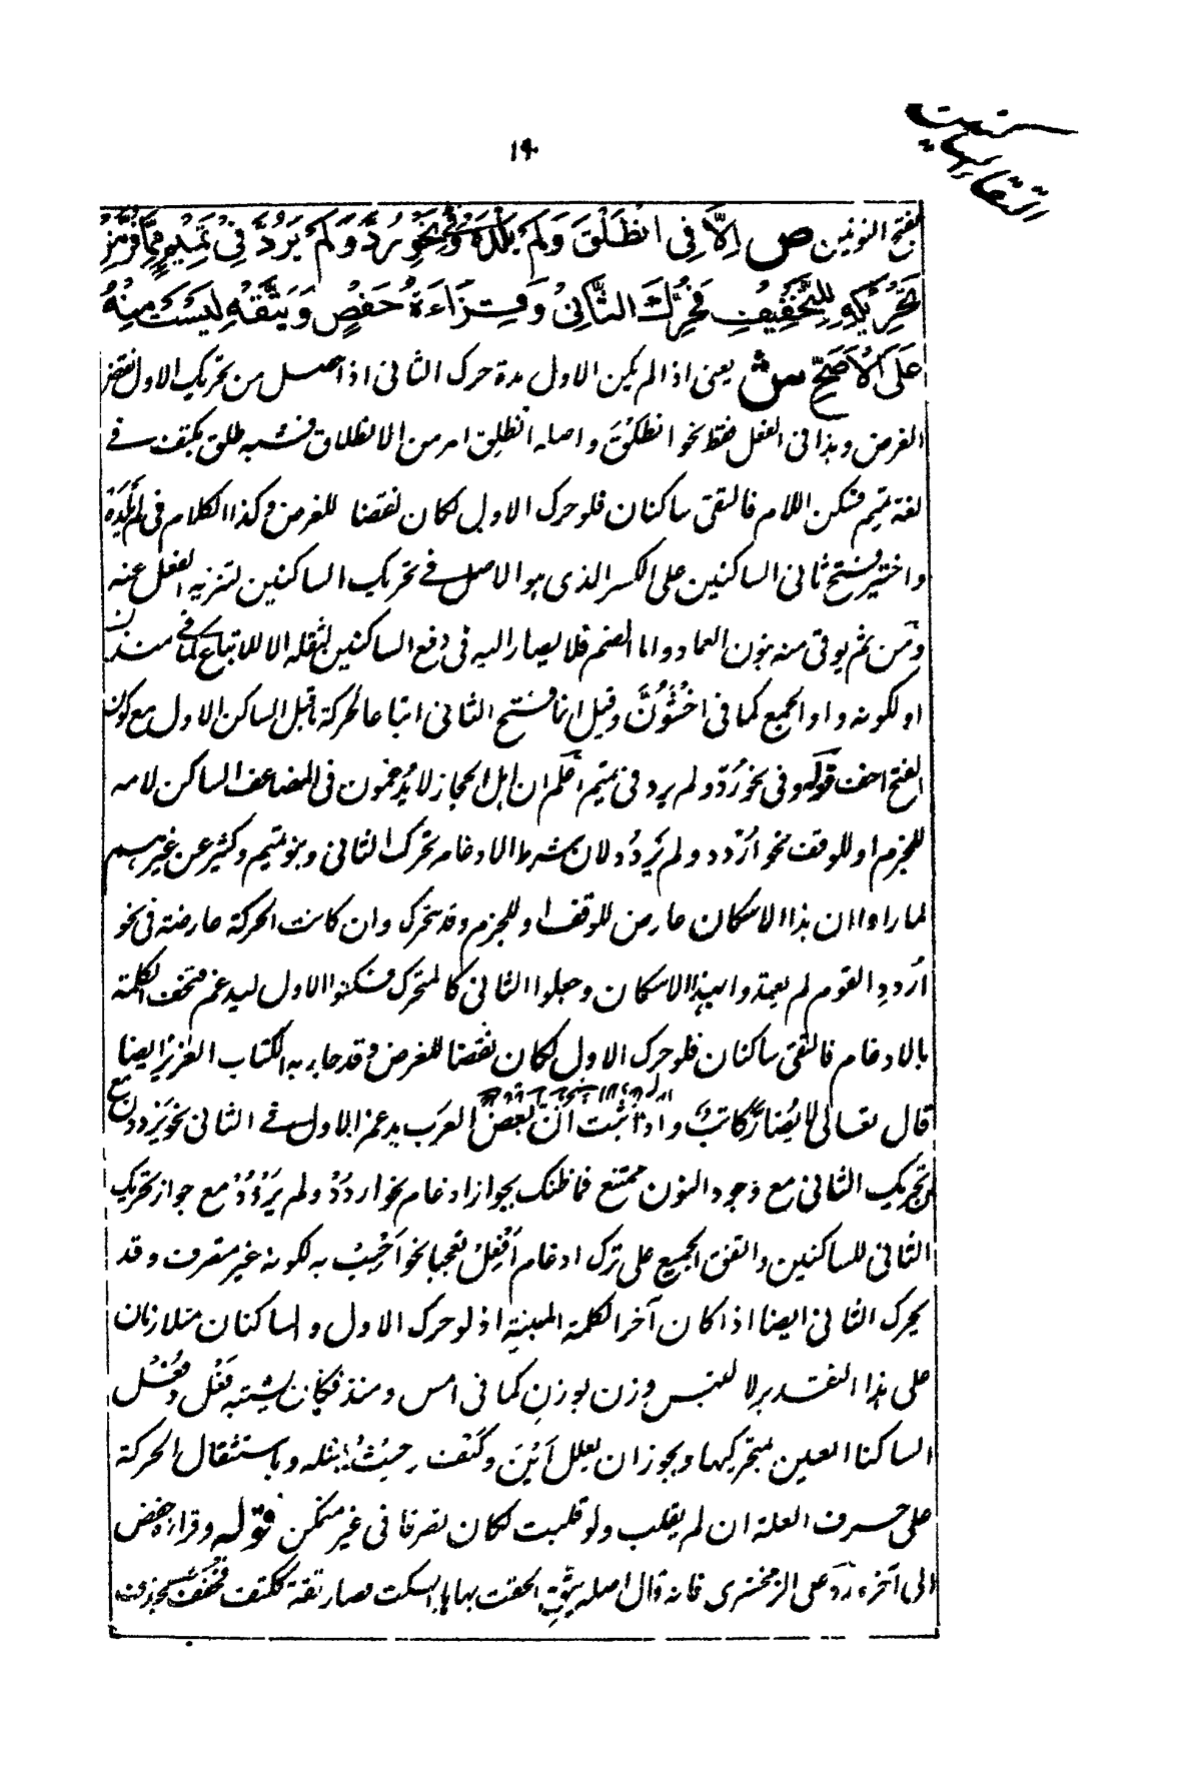 التقاء الساكنين
١٩٠
بفتح النونين ص اِلَّا فِى انْطَلْقَ وَلَمْ يَلْدَهْ وَفِىْ نَحْوِ رُدَّ وَلَمْ يَرُدَّ فِىْ تَمِيْمٍ مِمَّا فُرَّ مِنْ
تَحْرِيْكِهٖ لِلتَّخْفِيْفِ فَحُرِّكَ الثَّانِىْ وَقِرَاءَةُ حَفْصٍ وَيَتَّقْهِ لَيْسَتْ مِنْهُ
عَلَى الْاَصَحِّ ش يعنى اذا لم يكن الاول مدة حرك الثانى اذا حصل من تحريك الاول نقض
الغرض وهذا فى الفعل فقط نحو انطلْقَ واصله انطلِق امر من الانطلاق فشبه طلق بكتف فى
لغة تميم فسكن اللام فالتقى ساكنان فلو حرك الاول لكان نقضا للغرض وكذا الكلام فى لم يَلْدَهْ
واختير فتح ثانى الساكنين على الكسر الذى هو الاصل فى تحريك الساكنين لتنزيه الفعل عنه
ومن ثم يوقى منه بنون العماد واما الضم فلا يصار اليه فى دفع الساكنين لثقله الا للاتباع كما فى منذ
او لكونه واو الجمع كما فى اخْشَوُنَّ وقيل انما فتح الثانى اتباعا لحركة ما قبل الساكن الاول مع كون
الفتح اخف قوله وفى نحو رُدَّ ولم يرد فى تميم اعلم ان اهل الحجاز لا يُدغمون فى المضاعف الساكن لامه
للجزم او للوقف نحو اُرْدُد ولم يَرْدُد لان شرط الادغام تحرك الثانى وبنو تميم وكثير عن غيرهم
لما راوا ان هذا الاسكان عارض للوقف او للجزم وقد يتحرك وان كانت الحركة عارضة فى نحو
اُردُدِ القوم لم يعتدوا بهذا الاسكان وجعلوا الثانى كالمتحرك فسكنوا الاول ليدغم فتخف الكلمة
بالادغام فالتقى ساكنان فلو حرك الاول لكان نقضا للغرض وقد جاء به الكتاب العزيز ايضا
قال تعالى لا يُضَارَّ كاتبٌ واذا ثبت انّ بعض العرب يدغم الاول فى الثانى نحو يَرْدُدن مع
ان تحريك الثانى مع وجود النون ممتنع فما ظنك بجواز ادغام نحو اردُدْ ولم يَرْدُدْ مع جواز تحريك
الثانى للساكنين واتفق الجميع على ترك ادغام اَفْعِلْ تعجبا نحو اَحْبِبْ به لكونه غير متصرف وقد
يحرك الثانى ايضا اذا كان آخر الكلمة المبنية اذ لو حرك الاول والساكنان متلازمان
على هذا التقدير لا لتبس وزن بوزن كما فى امس ومنذ فكان يشتبه فَعْل وفُعْل
الساكنا العين بمتحركيها ويجوز ان يعلل اَيْنَ وكَيْفَ وحَيْثُ بمثله وباستثقال الحركة
على حرف العلة ان لم يقلب ولو قلبت لكان تصرفا فى غير متمكن قوله وقراءة حفص
الى آخره ردّ على الزمخشرى فانه قال اصله يَتَّقِ الحقت بها هاء السكت فصار تقه ككتف فخفف بحذف